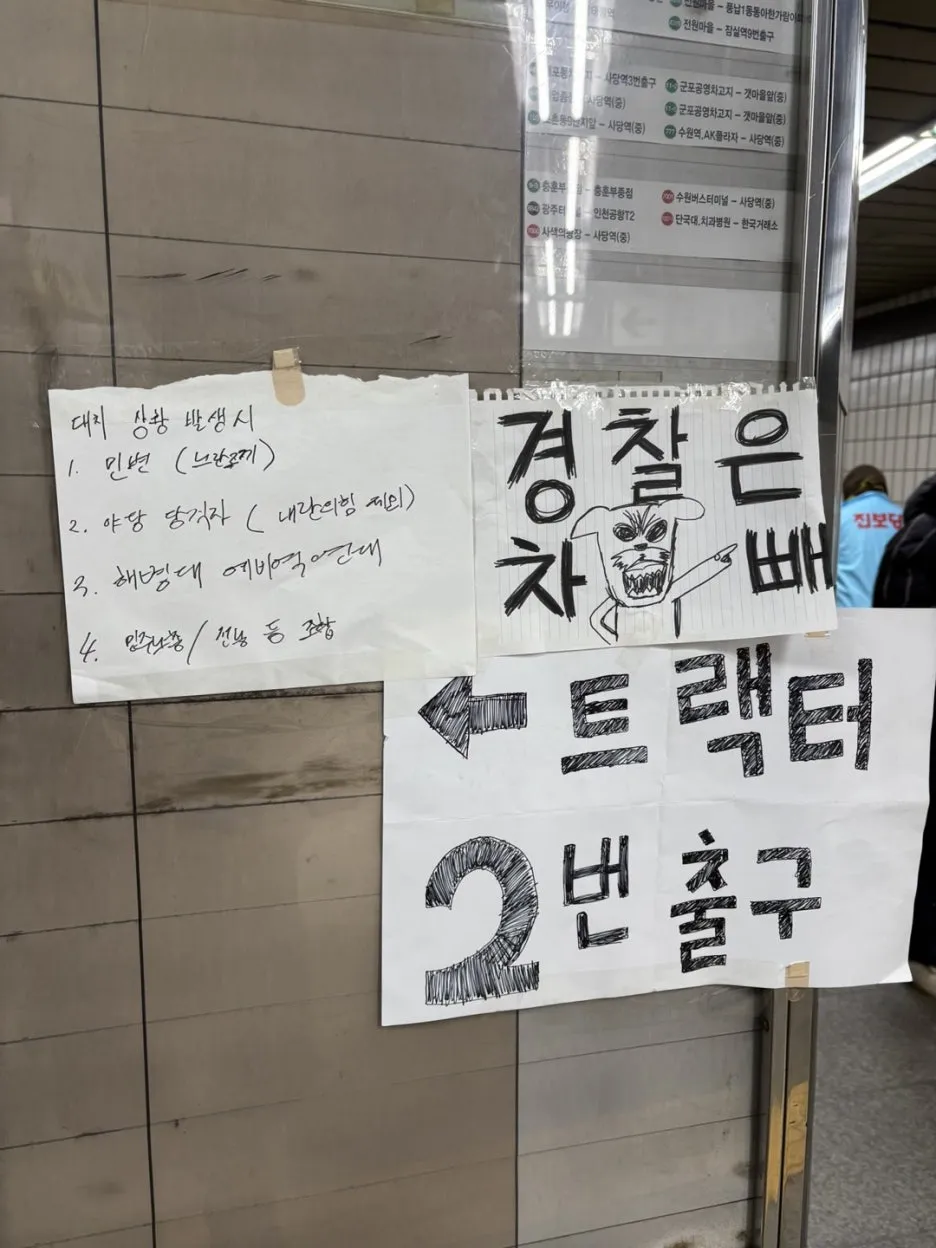 전원마을 - 잠실역9번출구
사당역3번출구
사당역(중)
사당역(중)
군포공영차고지 - 갯마을앞(중)
군포공영차고지 - 갯마을앞(중)
수원역,AK플라자 - 사당역(중)
충훈부종점
인천공항T2
사당역(중)
수원버스터미널 - 사당역(중)
단국대.치과병원 - 한국거래소
대치 상황 발생시
1. 민변 (노란조끼)
2. 야당 당직자 (내란의힘 제외)
3. 해병대 예비역 연대
4. 민주노총/ 전농 등 조합
경찰은
차 빼
← 트랙터
2번 출구
진보당